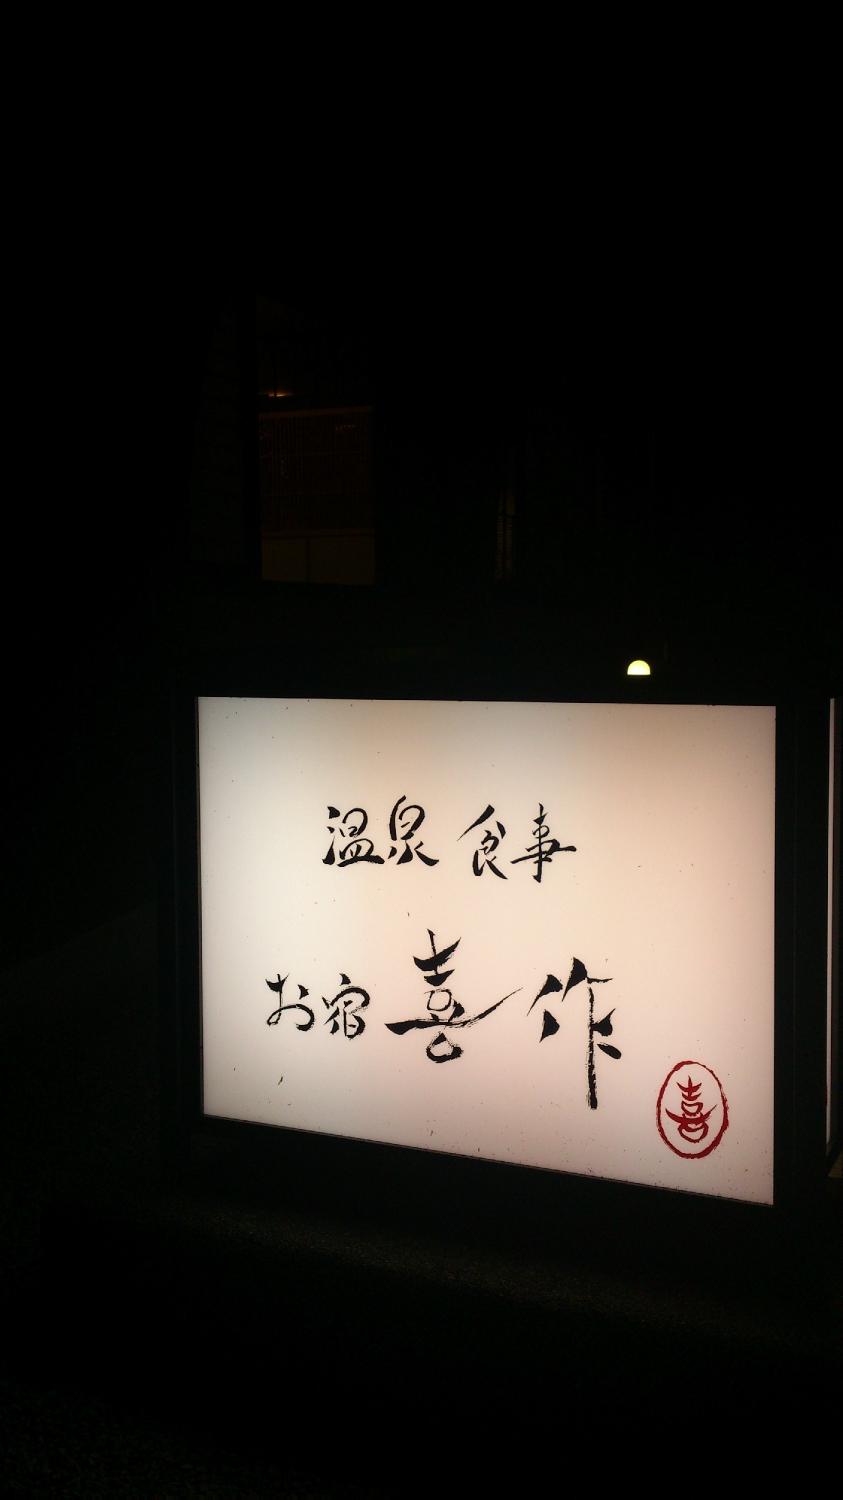 温泉 食事
お宿 喜作
喜